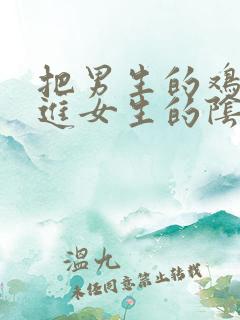 把男生的鸡
进女生的陰
溫九
未经同意禁止转载